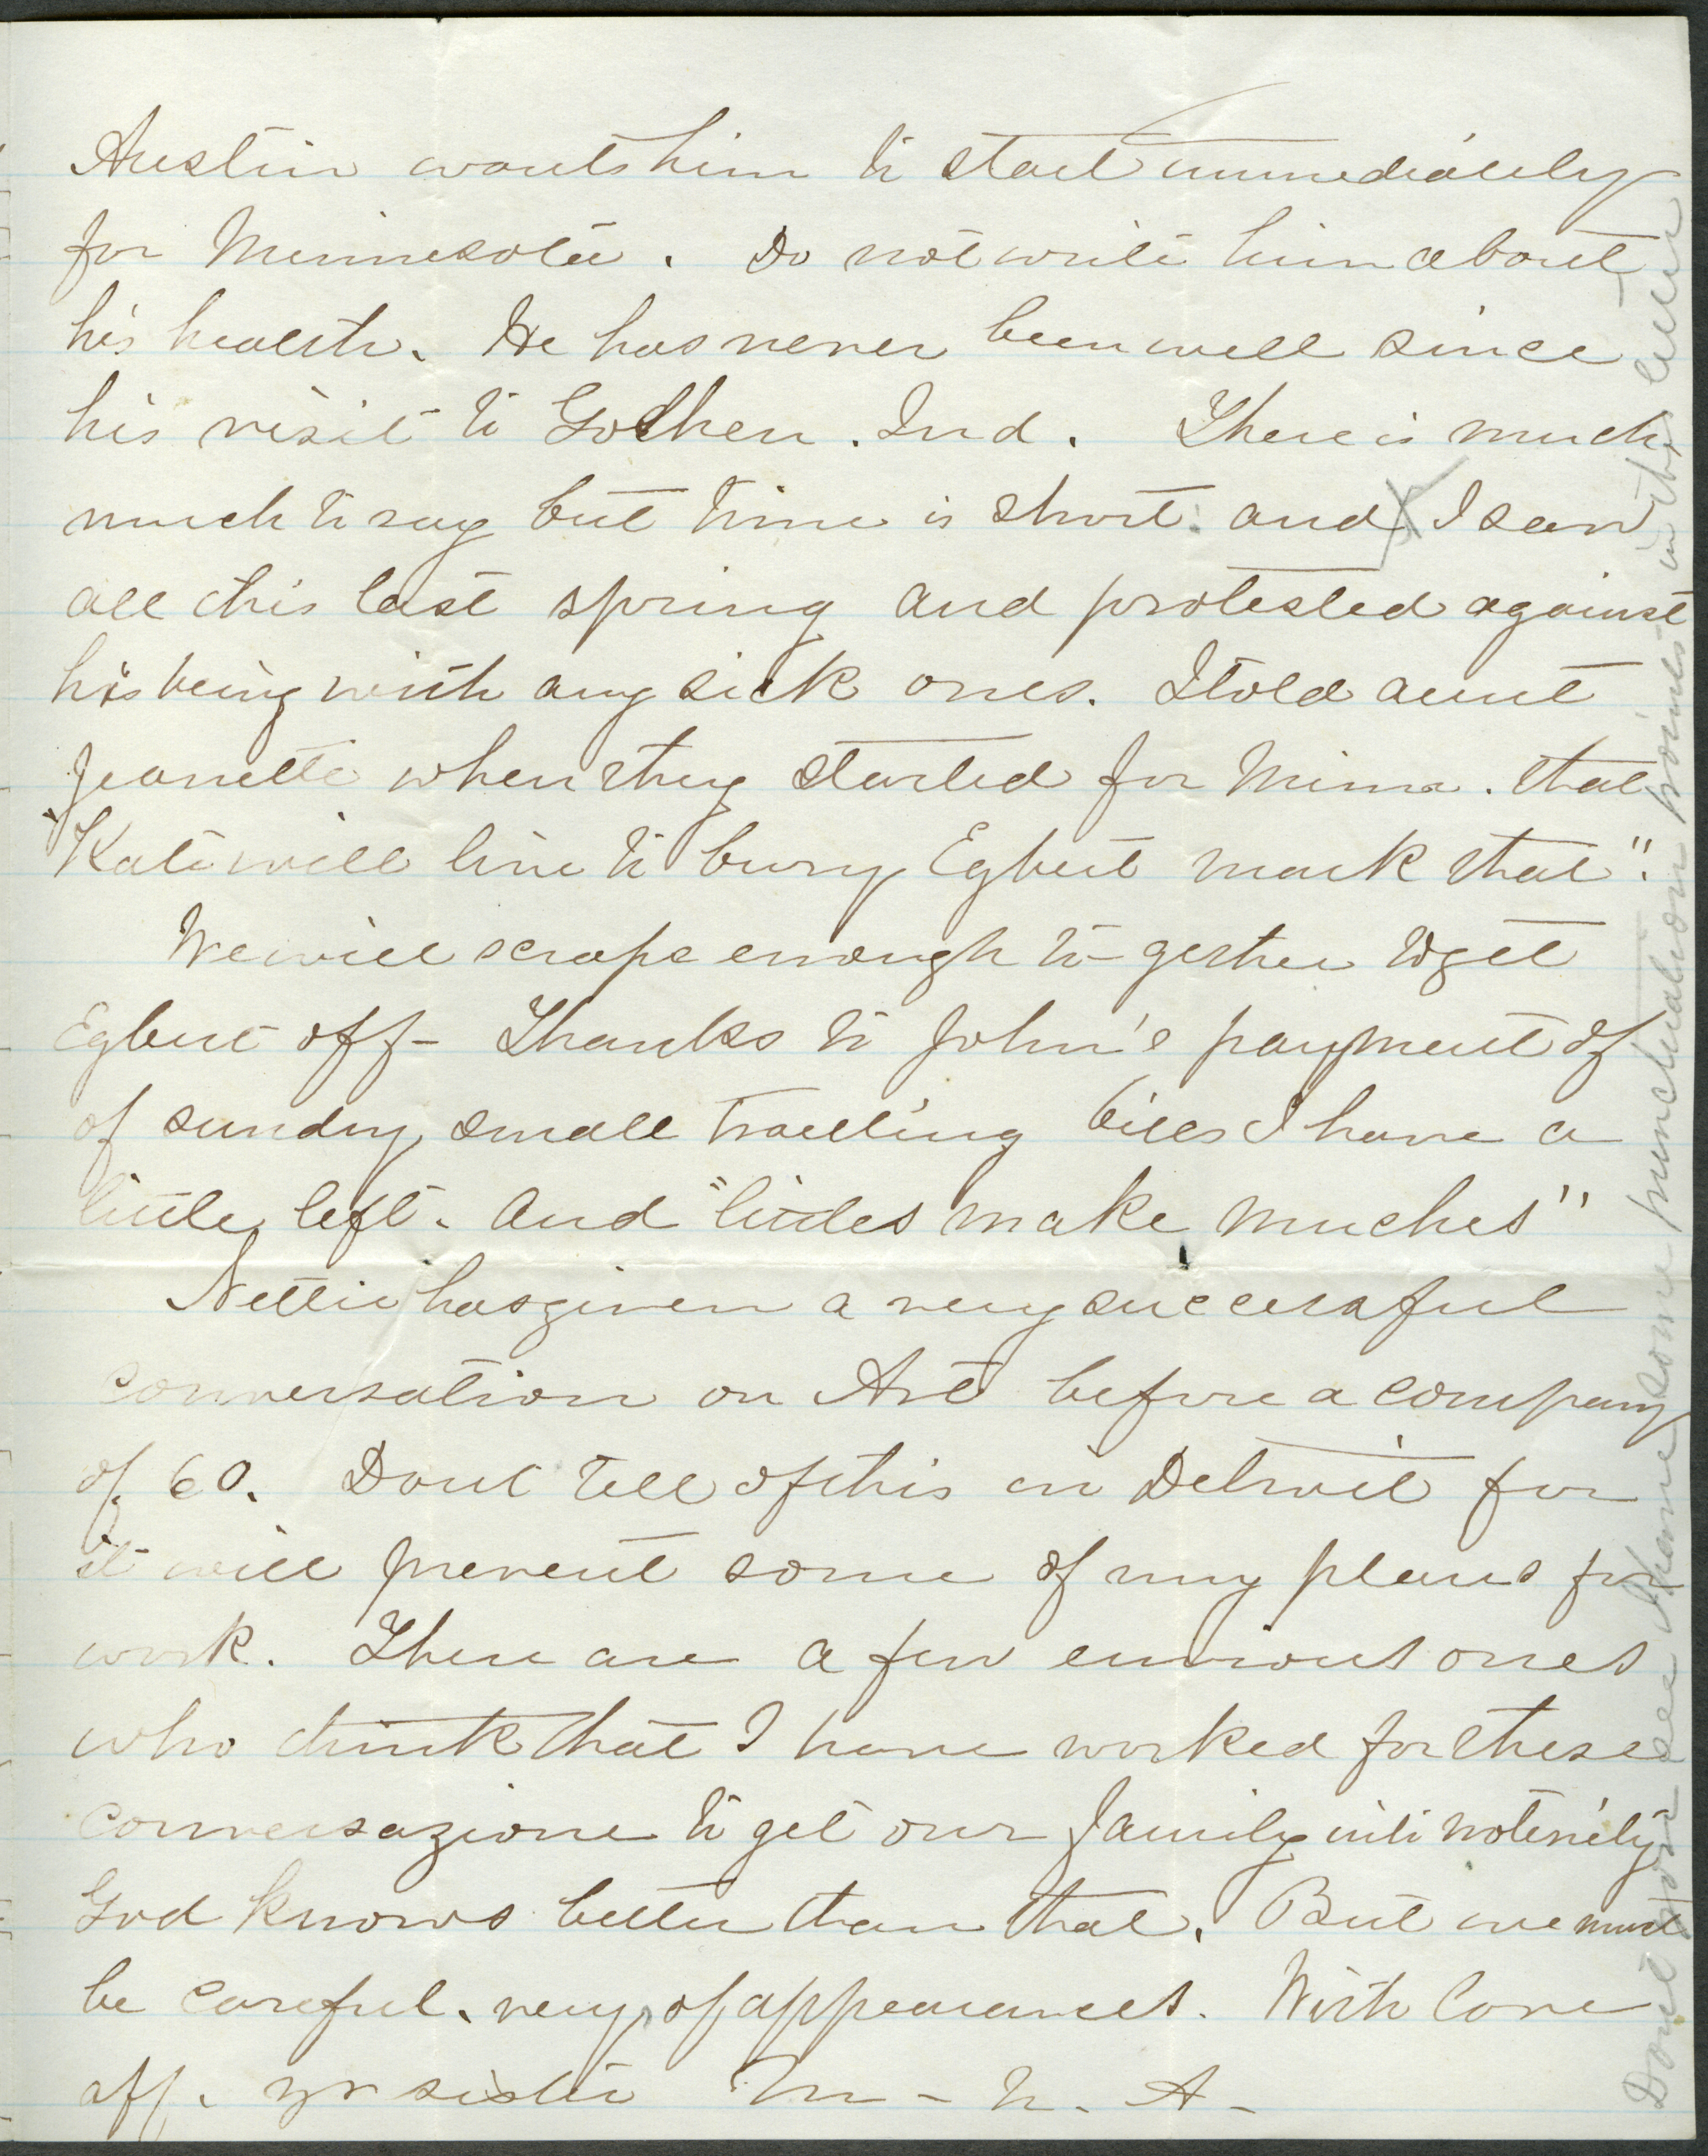 Austin wants him to start immediately
for Minnesota. Do not write him about
his health. He has never been well since
his visit to Goshen. Ind. There is much
much to say but time is short. and I saw
all this last spring and protested against
his being with any sick ones. I told aunt
Jeanette when they started for Minn. that
"Kate will live to bury Egbert mark that".
We will scrape enough to-gether to get
Egbert off- Thanks to John's payment of
of sundry small travelling bills I have a
little left. And "littles make muches"
Nettie has given a very successful
conversation on Art before a company
of 60. Dont tell of this in Detroit for
it will prevent some of my plans for
work. There are a few envious ones
who think that I have worked for these
conversazione to get our family into notoriety
God knows better than that. But we must
be careful. very, of appearances. With love
aff. yr sister M - N. A -
Dont you see I have some punctuation points in this letter